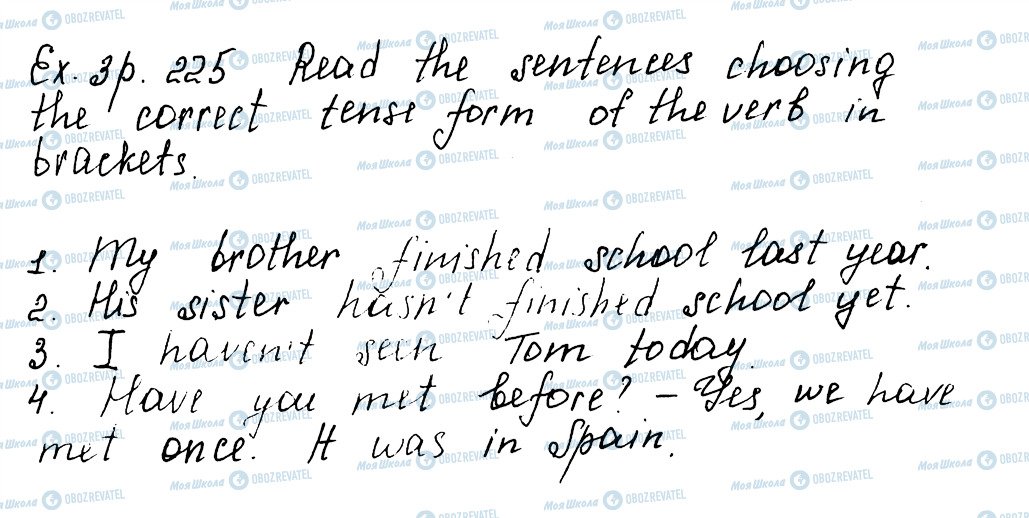 Ex. 3 p. 225 Read the sentences choosing
the correct tense form of the verb in
brackets.
1. My brother finished school last year.
2. His sister hasn't finished school yet.
3. I haven't seen Tom today.
4. Have you met before? – Yes, we have
met once. It was in Spain.